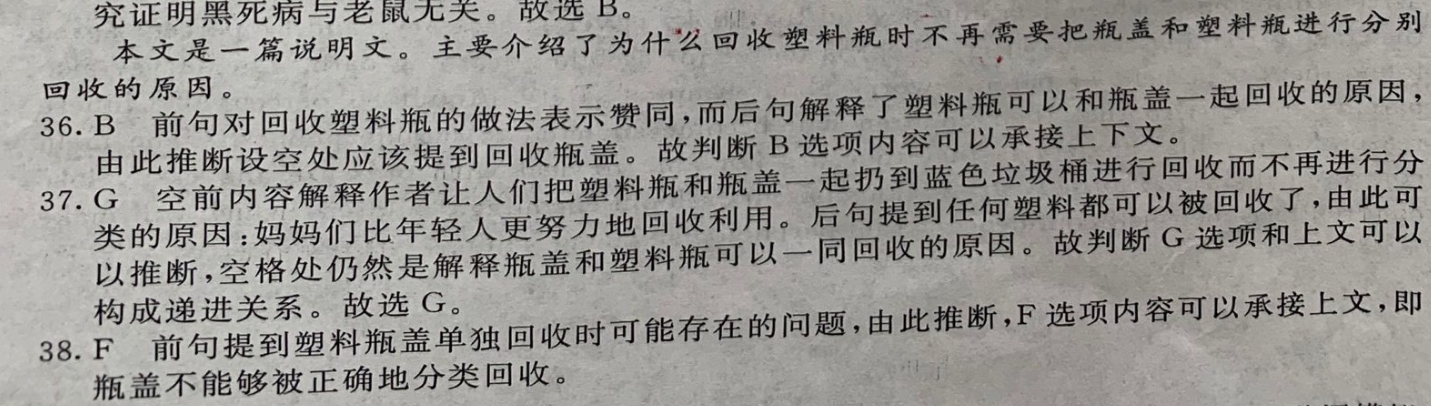 究证明黑死病与老鼠无关。故选 B。
本文是一篇说明文。主要介绍了为什么回收塑料瓶时不再需要把瓶盖和塑料瓶进行分别
回收的原因。
36. B 前句对回收塑料瓶的做法表示赞同,而后句解释了塑料瓶可以和瓶盖一起回收的原因,
由此推断设空处应该提到回收瓶盖。故判断 B 选项内容可以承接上下文。
37. G 空前内容解释作者让人们把塑料瓶和瓶盖一起扔到蓝色垃圾桶进行回收而不再进行分
类的原因:妈妈们比年轻人更努力地回收利用。后句提到任何塑料都可以被回收了,由此可
以推断,空格处仍然是解释瓶盖和塑料瓶可以一同回收的原因。故判断 G 选项和上文可以
构成递进关系。故选 G。
38. F 前句提到塑料瓶盖单独回收时可能存在的问题,由此推断,F 选项内容可以承接上文,即
瓶盖不能够被正确地分类回收。